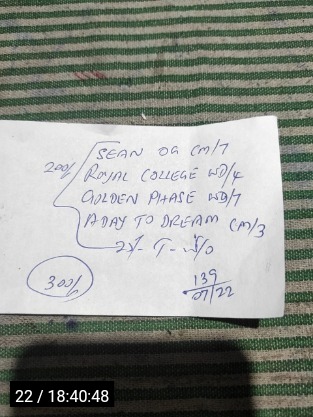 SEAN OG CM/7
200/- ROYAL COLLEGE WD/4
GOLDEN PHASE WD/7
A DAY TO DREAM CM/3
300/-
139
07/22
22 / 18:40:48